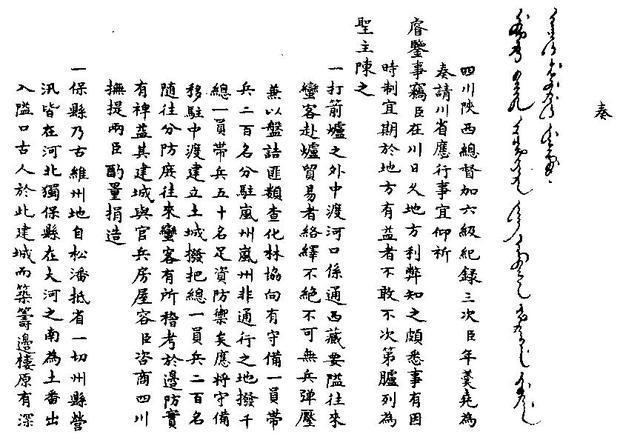 奏
四川陝西總督加六級紀錄三次臣年羹堯為
奏請川省應行事宜仰祈
睿鑒事竊臣在川日久地方利弊知之頗悉事有因
時制宜期於地方有益者不敢不次第臚列為
聖主陳之
一打箭爐之外中渡河口係通西藏要隘往來
蠻客赴爐貿易者絡繹不絕不可無兵彈壓
兼以盤詰匪類查化林協向有守備一員帶
兵二百名分駐嵐州嵐州非通行之地撥千
總一員帶兵五十名足資防禦矣應將守備
移駐中渡建立土城撥把總一員兵二百名
隨往分防庶往來蠻客有所稽考於邊防實
有裨益其建城與官兵房屋容臣咨商四川
撫提兩臣酌量捐造
一保縣乃古維州地自松潘抵省一切州縣營
汛皆在河北獨保縣在大河之南為土番出
入隘口古人於此建城而築籌邊樓原有深